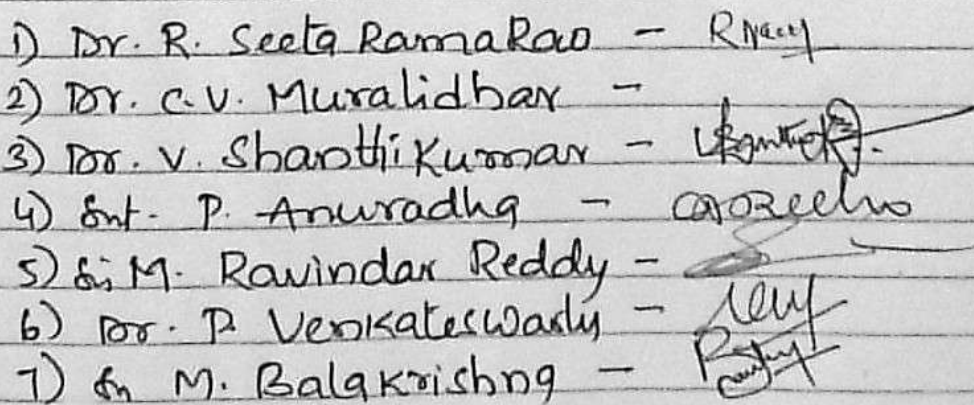 1) Dr. R. Seeta RamaRao -
2) Dr. C.V. Muralidhar -
3) Dr. V. Shanthi Kumar -
4) Smt. P. Anuradha -
5) Sri M. Ravindar Reddy -
6) Dr. P. Venkateswarlu -
7) Sri M. Balakrishna -